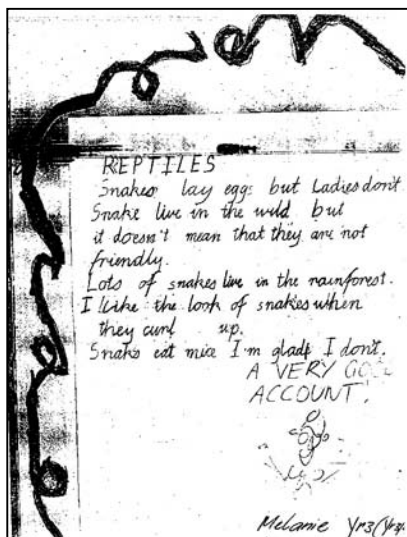 REPTILES
Snakes lay eggs but Ladies don't
Snake live in the wild but
it doesn't mean that they are not
friendly.
Lots of snakes live in the rainforest.
I like the look of snakes when
they curl up.
Snaks eat mice I'm glad I don't.
A VERY GOOD
ACCOUNT.
Melanie Yr3